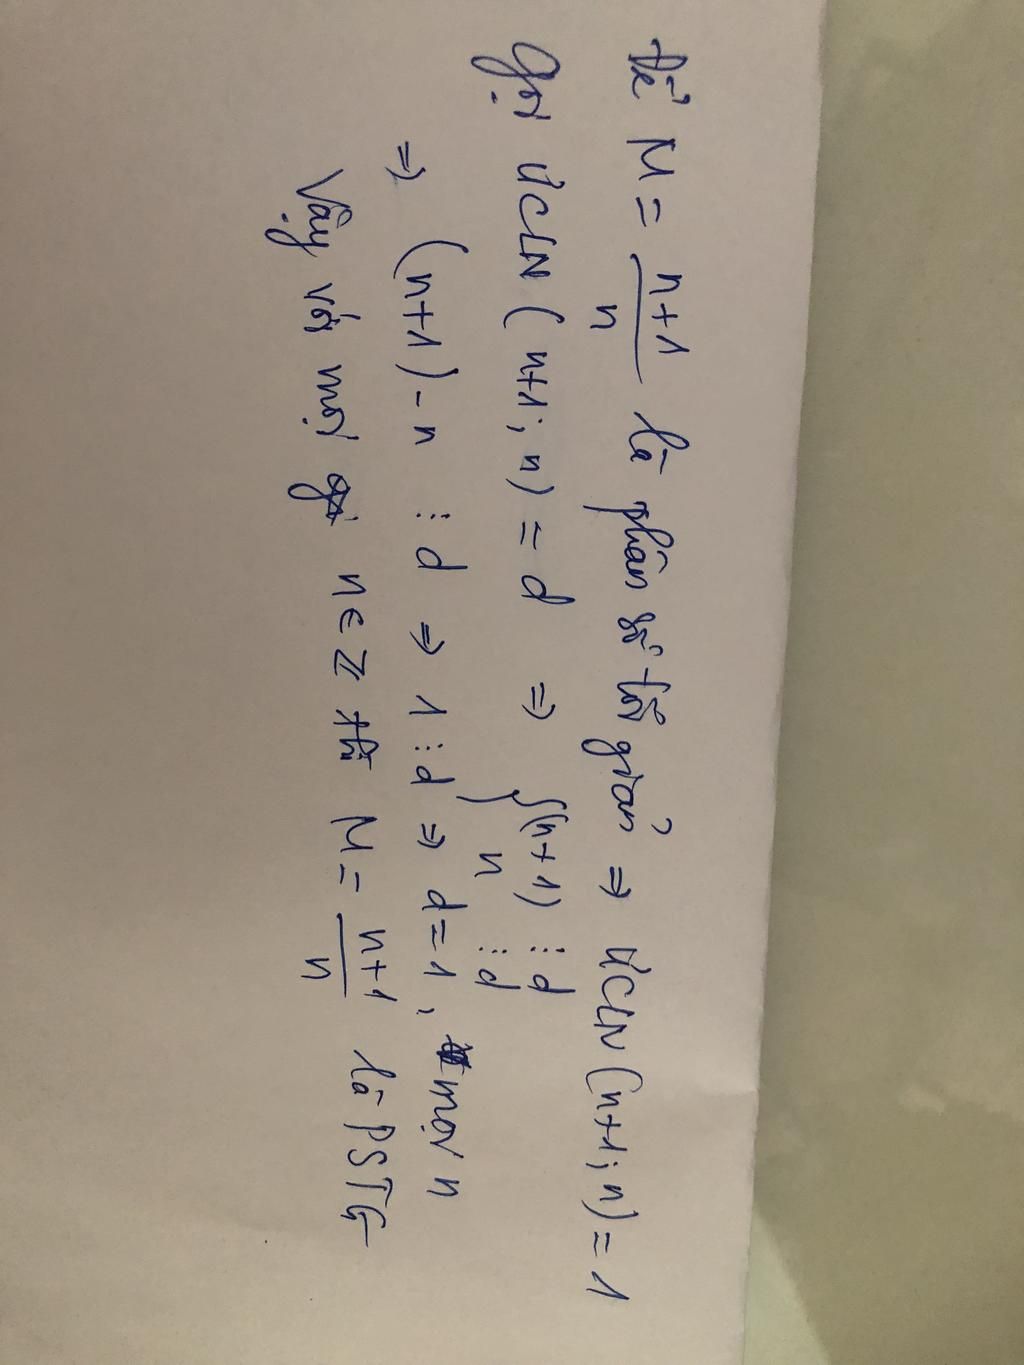 Để M = n+1/n là phân số tối giản ⇒ ƯCLN (n+1; n) = 1
Gọi ƯCLN (n+1; n) = d ⇒ { (n+1) ⋮ d
n ⋮ d
⇒ (n+1) - n ⋮ d ⇒ 1 ⋮ d ⇒ d = 1, mọi n
Vậy với mọi n ∈ Z thì M = n+1/n là PSTG